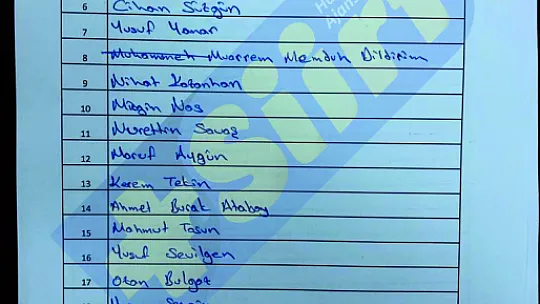 6 Cihan Süzgün
7 Yusuf Yanar
8 Muhammet Muarrem Memduh Bildirim
9 Nihat Kozanhan
10 Mizgin Nas
11 Nurettin Savaş
12 Maruf Aygün
13 Kerem Tekin
14 Ahmet Burak Atabay
15 Mahmut Tasun
16 Yusuf Sevilgen
17 Ozan Bulgaz